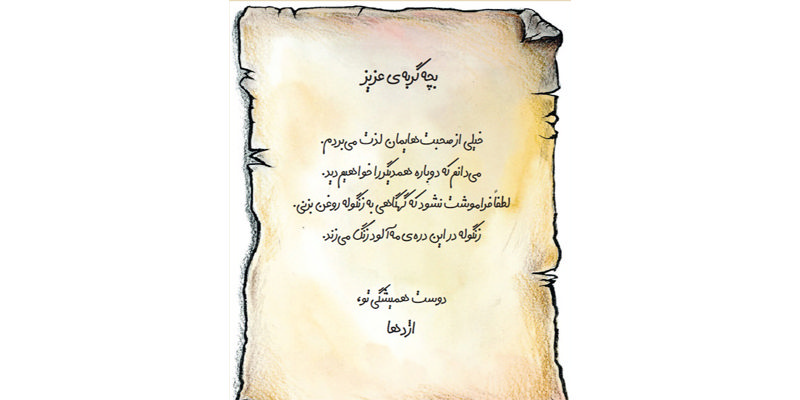 بچه گربه‌ی عزیز
خیلی از صحبت‌هایمان لذت می‌بردم.
می‌دانم که دوباره همدیگر را خواهیم دید.
لطفاً فراموشت نشود که گهگاهی به زنگوله روغن بزنی.
زنگوله در این دره‌ی مه‌آلود زنگ می‌زند.
دوست همیشگی تو،
اژدها